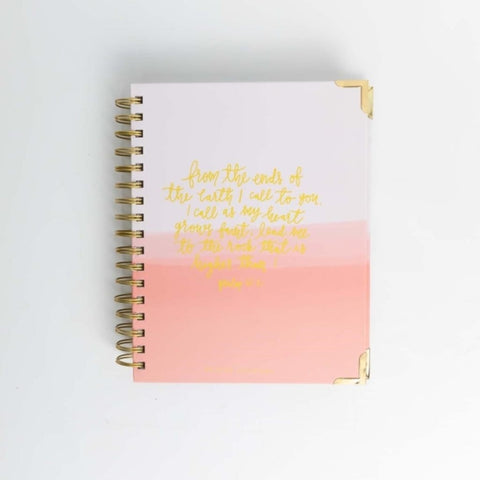 from the ends of
the earth I call to you,
I call as my heart
grows faint; lead me
to the rock that is
higher than I